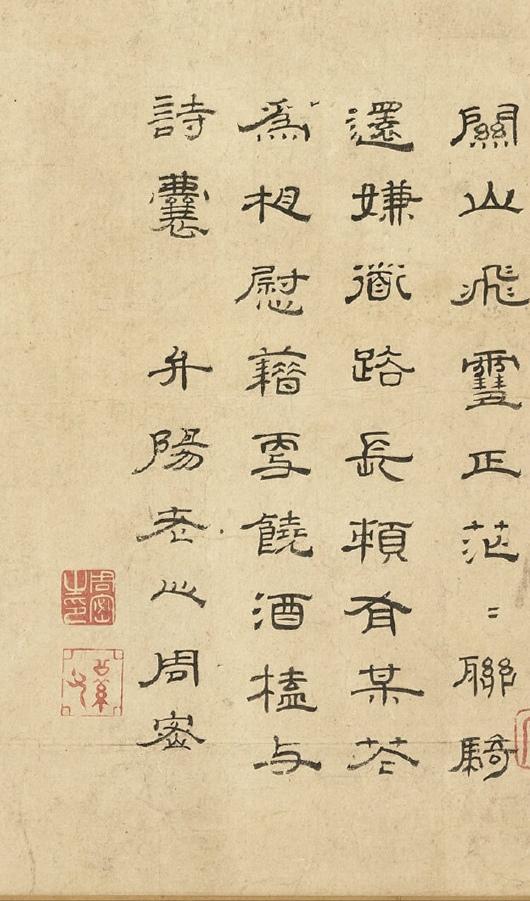 關山飛䨮正茫〻聯騎
還嫌衜路長賴有某芲
為相慰藉饒酒榼与
詩囊 弁陽老人周密
周密之印